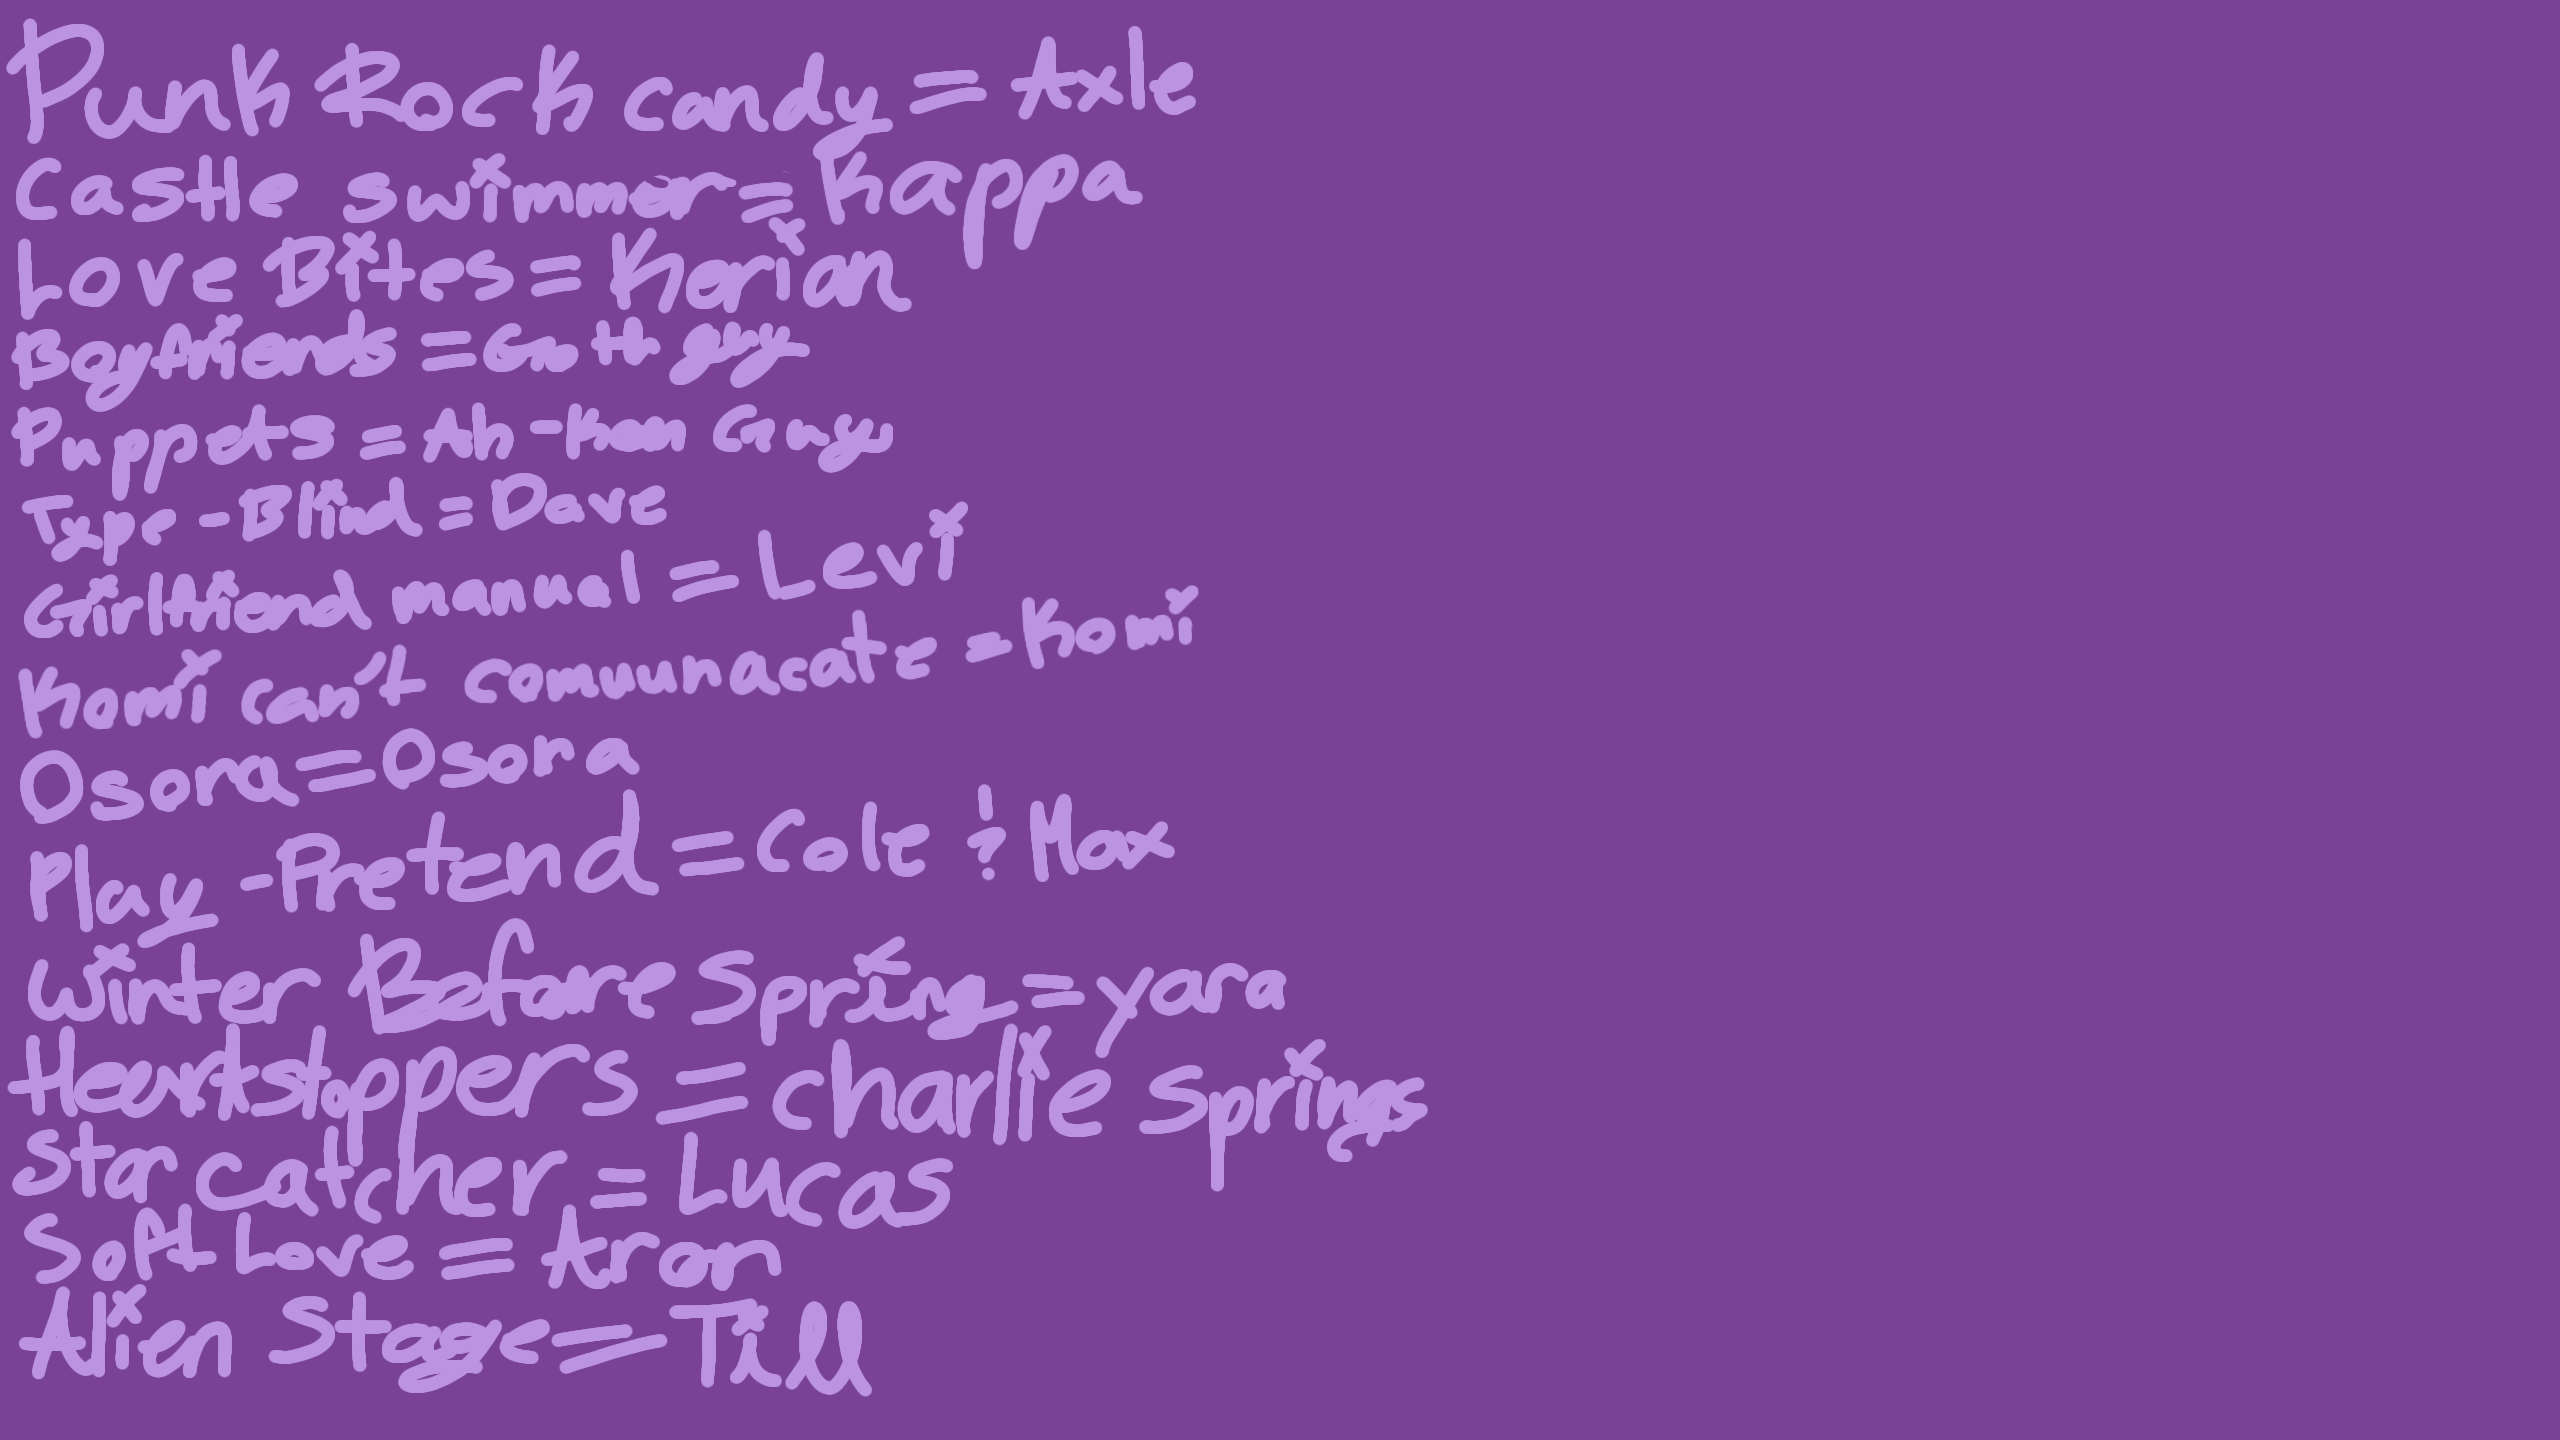 Punk Rock candy = Axle
Castle swimmer = Kappa
Love Bites = Kerian
Boyfriends = Goth guy
Puppets = Ah-Ken Guy
Type-Blind = Dave
Girlfriend manual = Levi
Komi can't comuunacate = Komi
Osora = Osora
Play-Pretend = Cole & Max
Winter Before Spring = yara
Heartstoppers = charlie Springs
Star catcher = Lucas
Soft Love = Aron
Alien Stage = Till